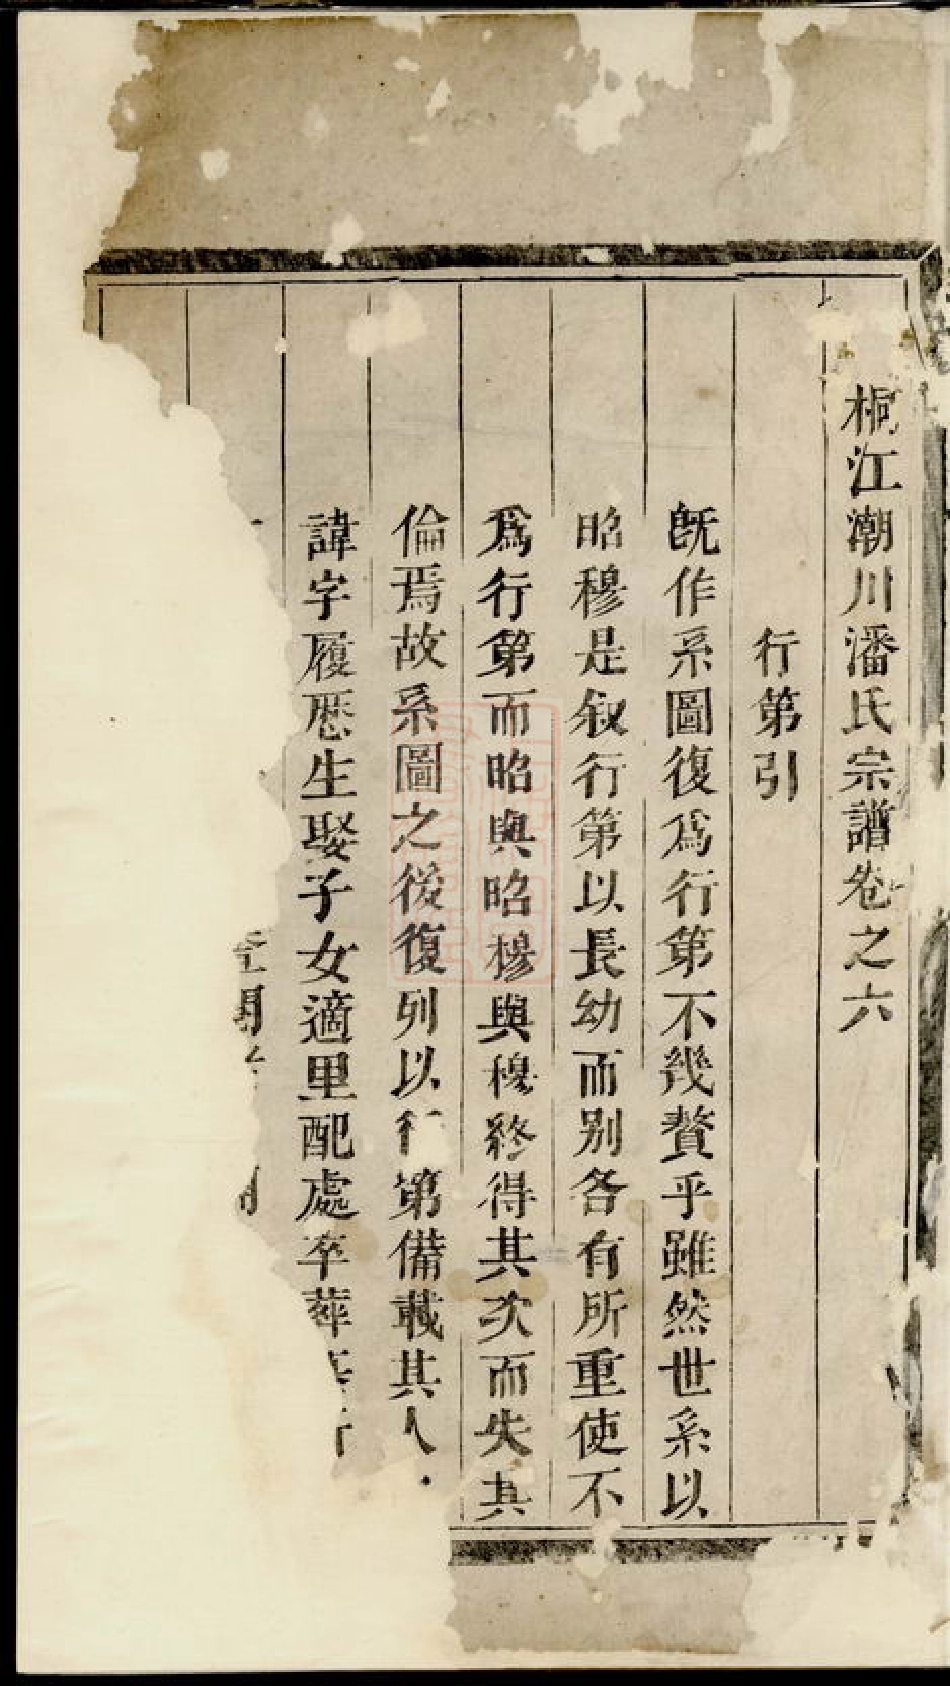 桐江潮川潘氏宗譜卷之六
行第引
旣作系圖復爲行第不幾贅乎雖然世系以
昭穆是敘行第以長幼而别各有所重使不
爲行第而昭與昭穆與穆終得其次而失其
倫焉故系圖之後復列以行第備載其人
諱字履歷生娶子女適里配處卒葬